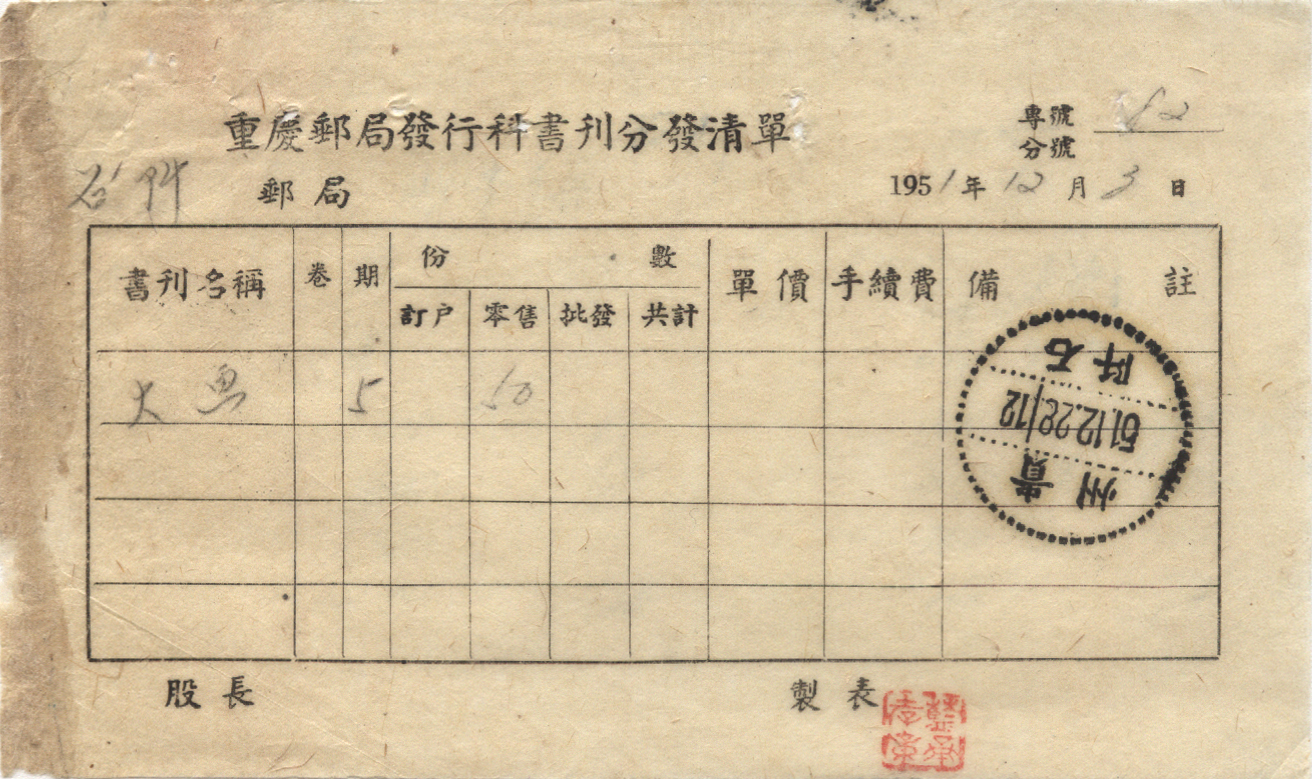 重慶郵局發行科書刊分發清單
專號
分號 82
石阡 郵局
1951年12月3日
書刊名稱 卷 期 份數 單價 手續費 備註
訂户 零售 批發 共計
大 5 50
石阡
51.12.28/12
貴州
股長 製表